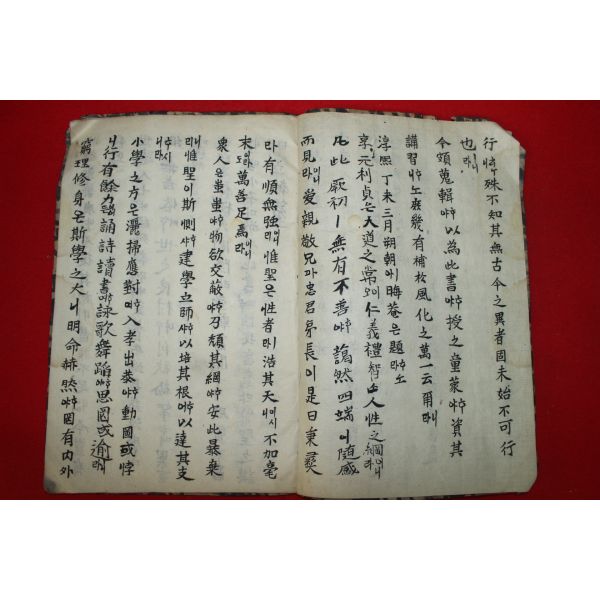 行ᄒᆞ나殊不知其無古今之異者固未始不可行
也라니
今頗蒐輯ᄒᆞ야以為此書ᄒᆞ야授之童蒙ᄒᆞ야資其
講習ᄒᆞ노庶幾有補於風化之萬一云爾라니
淳熙丁未三月朔朝에晦菴은題ᄒᆞ노라
享元利貞은天道之常이오仁義禮智는人性之綱이니라
凡此厥初ㅣ無有不善ᄒᆞ야藹然四端이隨感
而見이니라愛親敬兄과忠君弟長이是曰秉彛
라有順無強이니라惟聖은性者라시浩其天이시니不加毫
末이라도萬善足焉이니라
衆人은蚩蚩ᄒᆞ야物欲交蔽ᄒᆞ야乃頹其綱ᄒᆞ야安此暴棄
惟聖이斯惻ᄒᆞ샤建學立師ᄒᆞ샤以培其根ᄒᆞ야以達其支
ᄒᆞ시니라
小學之方은灑掃應對ᄒᆞ며入孝出恭ᄒᆞ야動罔或悖
니行有餘力이어든誦詩讀書ᄒᆞ며詠歌舞蹈ᄒᆞ야思罔或逾라니
窮理修身은斯學之大니明命赫然ᄒᆞ야罔有內外